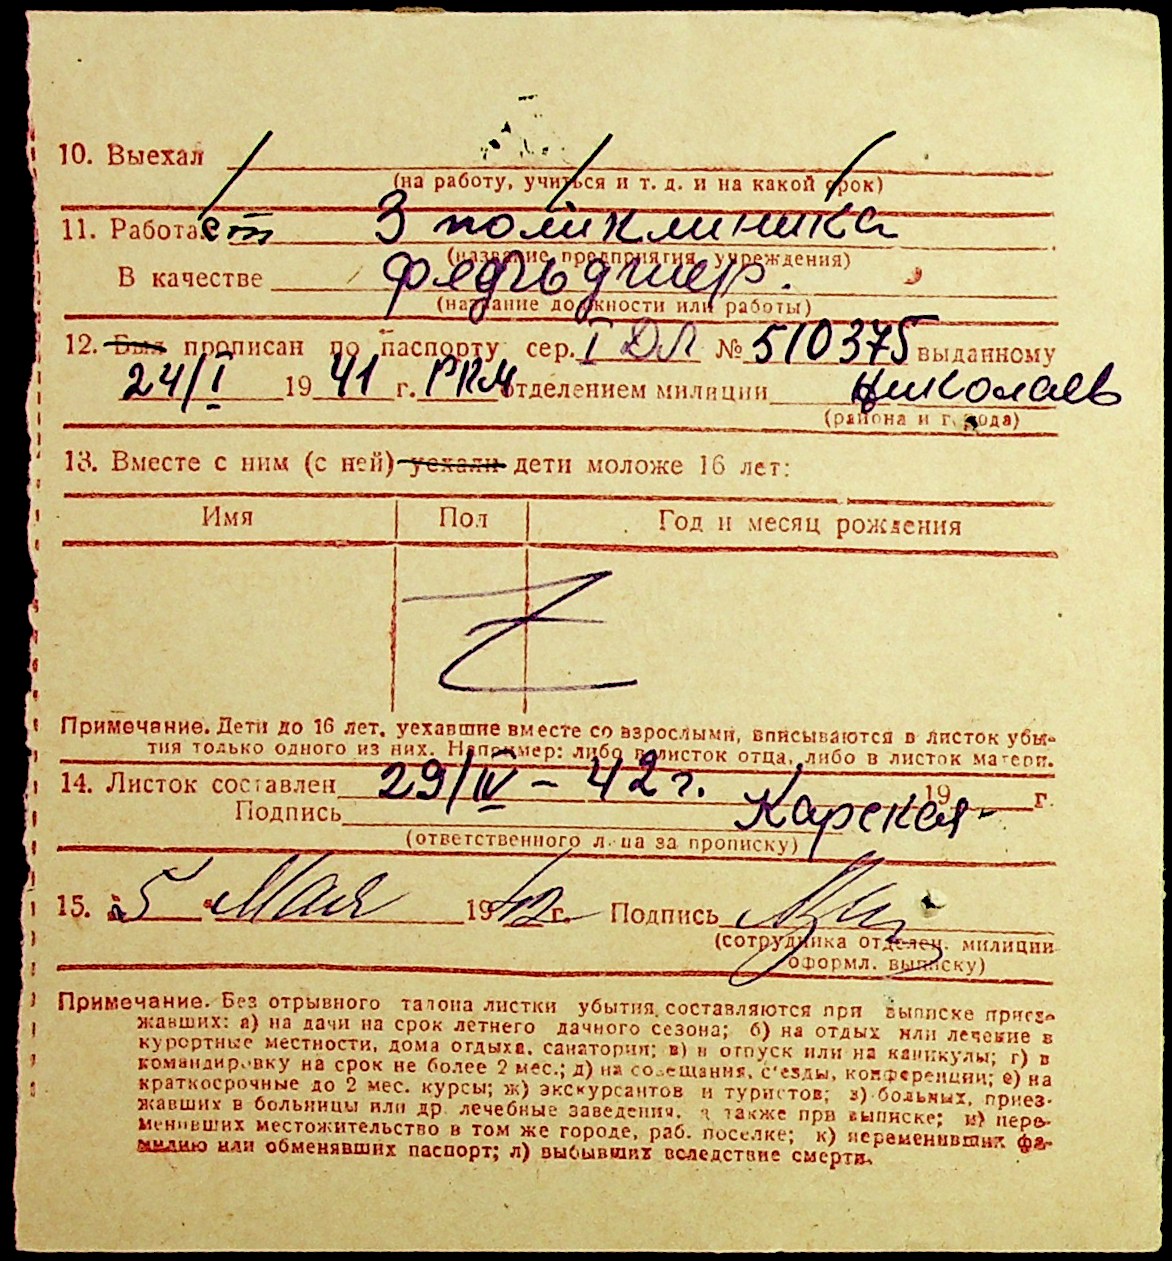 10. Выехал
(на работу, учиться и т. д. и на какой срок)
11. Работает 3 поликлиника
(название предприятия, учреждения)
В качестве фельдшер.
(название должности или работы)
12. Был прописан по паспорту сер. I ДЛ № 510375 выданному
24/I 1941 г. РКМ отделением милиции Николаев
(района и города)
13. Вместе с ним (с ней) уехали дети моложе 16 лет:
Имя Пол Год и месяц рождения
Z
Примечание. Дети до 16 лет, уехавшие вместе со взрослыми, вписываются в листок убы-
тия только одного из них. Например: либо в листок отца, либо в листок матери.
14. Листок составлен 29/IV - 42 г. 19 г.
Подпись Карская
(ответственного лица за прописку)
15. „5“ Мая 1942 г. Подпись
(сотрудника отделен. милиции
оформл. выписку)
Примечание. Без отрывного талона листки убытия составляются при выписке приез-
жавших: а) на дачи на срок летнего дачного сезона; б) на отдых или лечение в
курортные местности, дома отдыха, санатории; в) в отпуск или на каникулы; г) в
командировку на срок не более 2 мес.; д) на совещания, с'езды, конференции; е) на
краткосрочные до 2 мес. курсы; ж) экскурсантов и туристов; з) больных, приез-
жавших в больницы или др. лечебные заведения, а также при выписке; и) пере-
менивших местожительство в том же городе, раб. поселке; к) переменивших фа-
милию или обменявших паспорт; л) выбывших вследствие смерти.